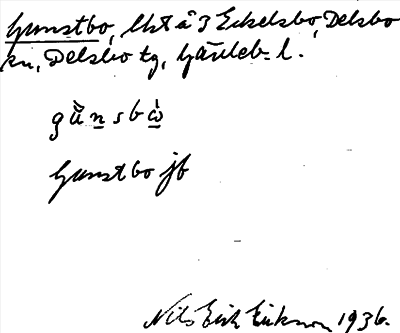 Gunstbo, lht å 3 Eckelsbo, Delsbo
sn, Delsbo tg, Gävleb. l.
gu̇̀nsbὼ
Gunstbo jb
Nils Erik Erikson 1936.